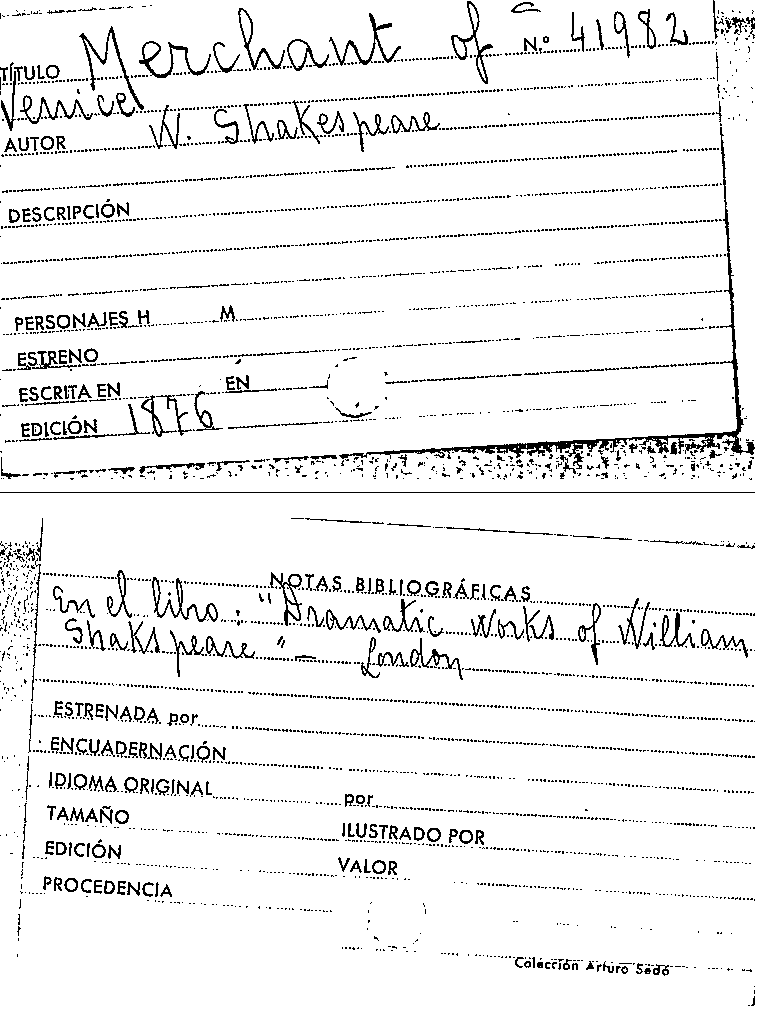 TÍTULO Merchant of N.º 41982
Venice
AUTOR W. Shakespeare
DESCRIPCIÓN
PERSONAJES H M
ESTRENO
ESCRITA EN EN
EDICIÓN 1876
NOTAS BIBLIOGRÁFICAS
En el libro: "Dramatic Works of William
Shakspeare" - London
ESTRENADA por
ENCUADERNACIÓN
IDIOMA ORIGINAL por
TAMAÑO ILUSTRADO POR
EDICIÓN VALOR
PROCEDENCIA
Colección Arturo Sedó